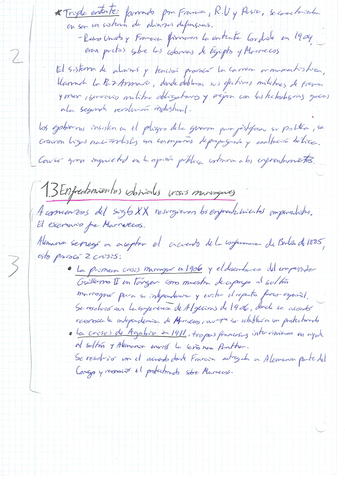 2
* Triple entente: formado por Francia, R.U y Rusia, se caracterizaba
en ser un sistema de alianzas defensivas.
- Reino Unido y Francia firmaron la entente Cordiale en 1904
eran pactos sobre las colonias de Egipto y Marruecos
El sistema de alianzas y tensión provocó la carrera armamentística,
llamada la Paz Armada, donde sus efectivos militares de tierra
y mar, servicio militar obligatorio y gracias
a la segunda revolución industrial.
Los gobiernos insistían en el peligro de la guerra para justificar su política, se
crearon ligas nacionalistas con campañas de propaganda y exaltación bélica.
Causó gran inquietud en la opinión pública contraria a los enfrentamientos.
3
1.3 Enfrentamientos coloniales crisis marroquíes
A comienzos del siglo XX resurgieron los enfrentamientos imperialistas.
El escenario fue Marruecos.
Alemania se negó a aceptar el acuerdo de la conferencia de Berlín de 1885,
esto provocó 2 crisis:
• La primera crisis marroquí en 1906 y el desembarco del emperador
Guillermo II en Tánger como muestra de apoyo al sultán
marroquí para su independencia y evitar el reparto franco español.
Se resolvió con la conferencia de Algeciras de 1906, donde se acordó
reconocer la independencia de Marruecos, se establecía un protectorado
• La crisis de Agadir en 1911, tropas francesas intervinieron en ayuda
al sultán y Alemania envió la cañonera Panther.
Se resolvió con el acuerdo donde Francia entregaba a Alemania parte del
Congo y reconocía el protectorado sobre Marruecos.